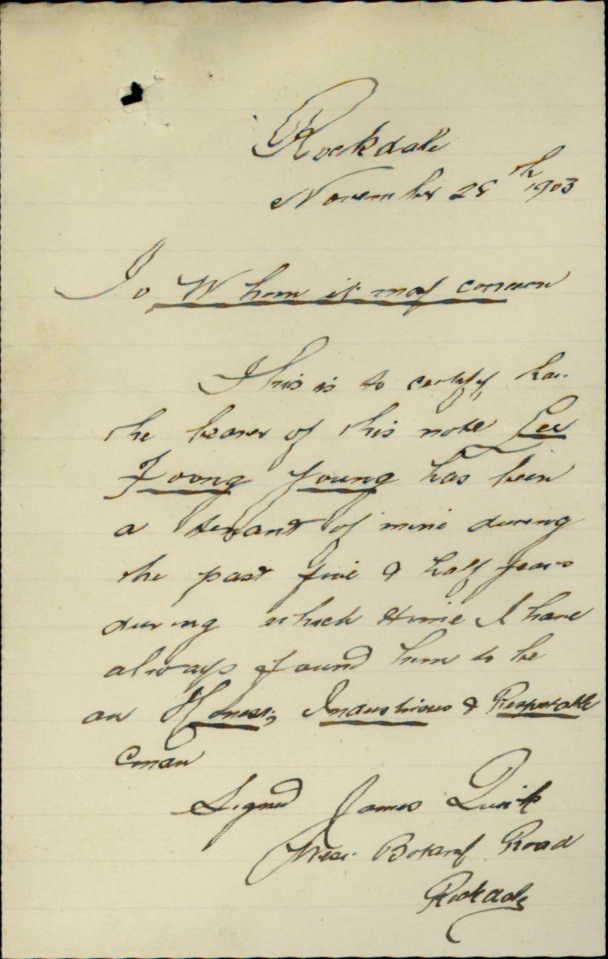 Rockdale
November 28th 1903
To Whom it may concern
This is to certify tha
the bearer of this note Lee
Foong Young has been
a tenant of mine during
the past five & half years
during which time I have
always found him to be
an Honest, Industrious & Respectable
man
Signed James Quirk
West Botany Road
Rockdale